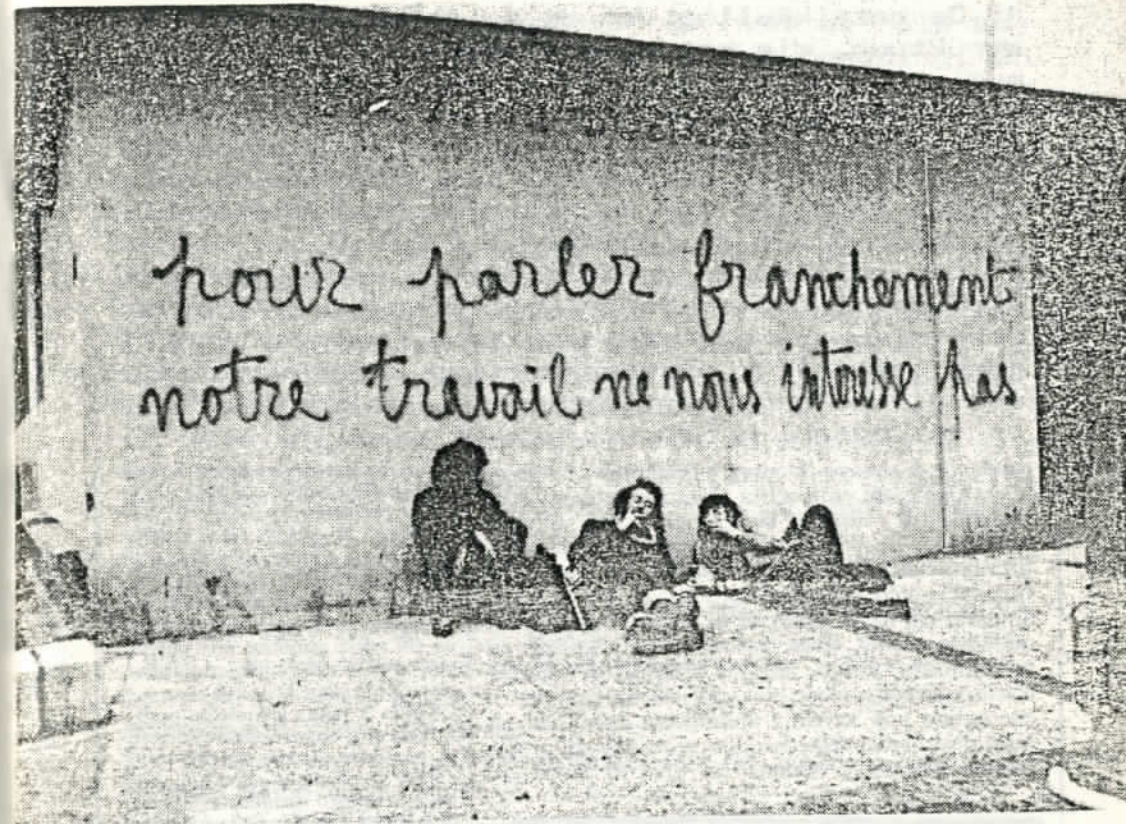 pour parler franchement
notre travail ne nous intéresse pas